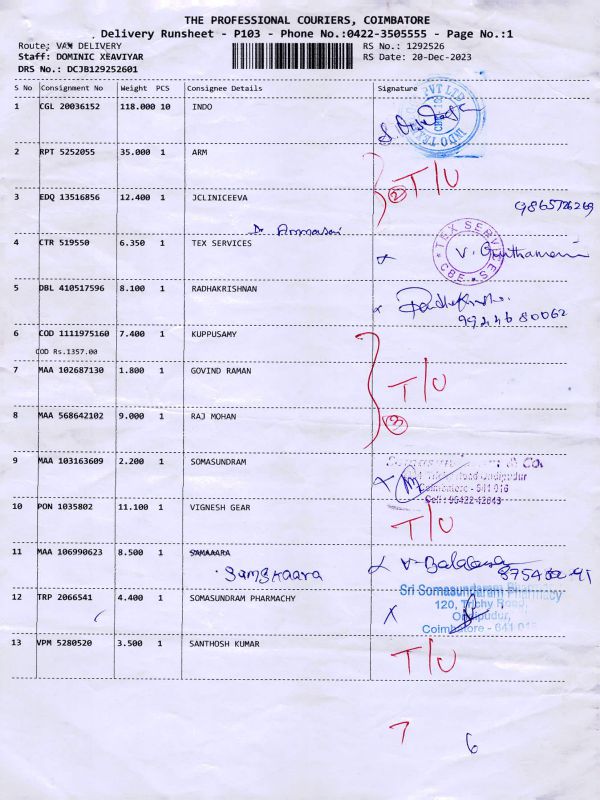 THE PROFESSIONAL COURIERS, COIMBATORE
Delivery Runsheet - P103 - Phone No.:0422-3505555 - Page No.:1
Route: VAN DELIVERY RS No.: 1292526
Staff: DOMINIC XEAVIYAR RS Date: 20-Dec-2023
DRS No.: DCJB129252601
S No Consignment No Weight PCS Consignee Details Signature
1 CGL 20036152 118.000 10 INDO
2 RPT 5252055 35.000 1 ARM
T/U
2
3 EDQ 13516856 12.400 1 JCLINICEEVA
9865726269
4 CTR 519550 6.350 1 TEX SERVICES
TEX SERVICES
CBE
5 DBL 410517596 8.100 1 RADHAKRISHNAN
9944680062
6 COD 1111975160 7.400 1 KUPPUSAMY
COD Rs.1357.00
7 MAA 102687130 1.800 1 GOVIND RAMAN
T/U
8 MAA 568642102 9.000 1 RAJ MOHAN
3
9 MAA 103163609 2.200 1 SOMASUNDRAM
& Co.
Road Ondipudur
Coimbatore - 641 016
10 PON 1035802 11.100 1 VIGNESH GEAR
T/U
11 MAA 106990623 8.500 1 SAMAAARA
Samskaara
12 TRP 2066541 4.400 1 SOMASUNDRAM PHARMACHY
Sri Somasundaram Pharmacy
120, Trichy Road,
Ondipudur,
Coimbatore - 641 016
13 VPM 5280520 3.500 1 SANTHOSH KUMAR
T/U
7 6